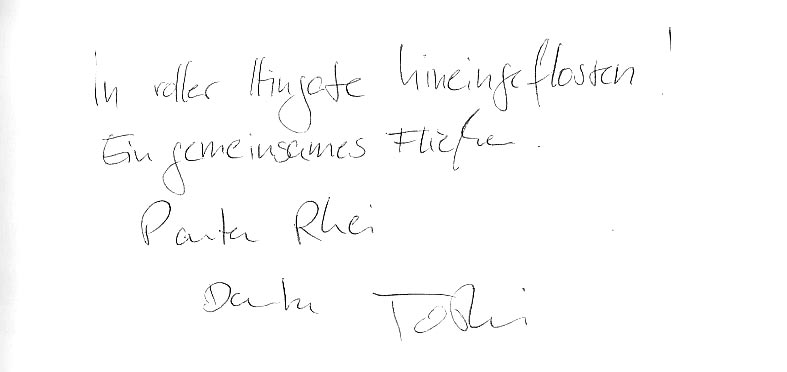 In voller Hingabe hineingeflossen!
Ein gemeinsames Fließen.
Panta Rhei
Danke